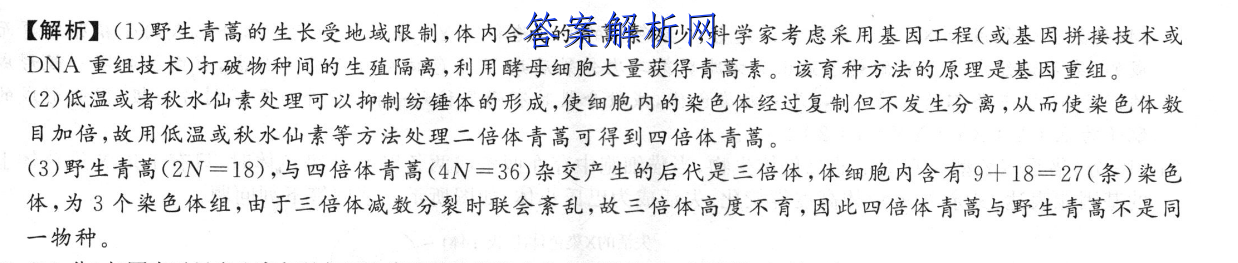 【解析】(1)野生青蒿的生长受地域限制,体内合的少,科学家考虑采用基因工程(或基因拼接技术或
答案解析网
DNA 重组技术)打破物种间的生殖隔离,利用酵母细胞大量获得青蒿素。该育种方法的原理是基因重组。
(2)低温或者秋水仙素处理可以抑制纺锤体的形成,使细胞内的染色体经过复制但不发生分离,从而使染色体数
目加倍,故用低温或秋水仙素等方法处理二倍体青蒿可得到四倍体青蒿。
(3)野生青蒿(2N=18),与四倍体青蒿(4N=36)杂交产生的后代是三倍体,体细胞内含有 9+18=27(条)染色
体,为 3 个染色体组,由于三倍体减数分裂时联会紊乱,故三倍体高度不育,因此四倍体青蒿与野生青蒿不是同
一物种。